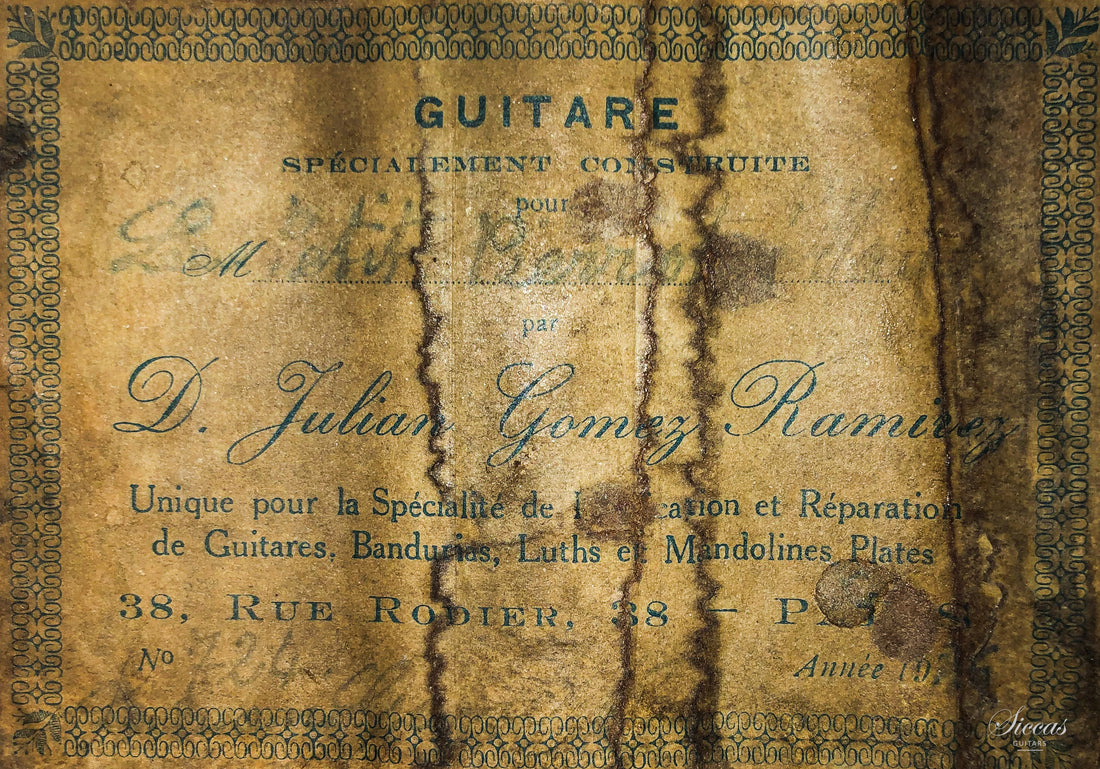 GUITARE
SPÉCIALEMENT CONSTRUITE
pour
M
par
D. Julian Gomez Ramirez
Unique pour la Spécialité de et Réparation
de Guitares, Bandurrias, Luths et Mandolines Plates
38, RUE RODIER, 38 — PARIS
Nº
Année
Siccas
GUITARS